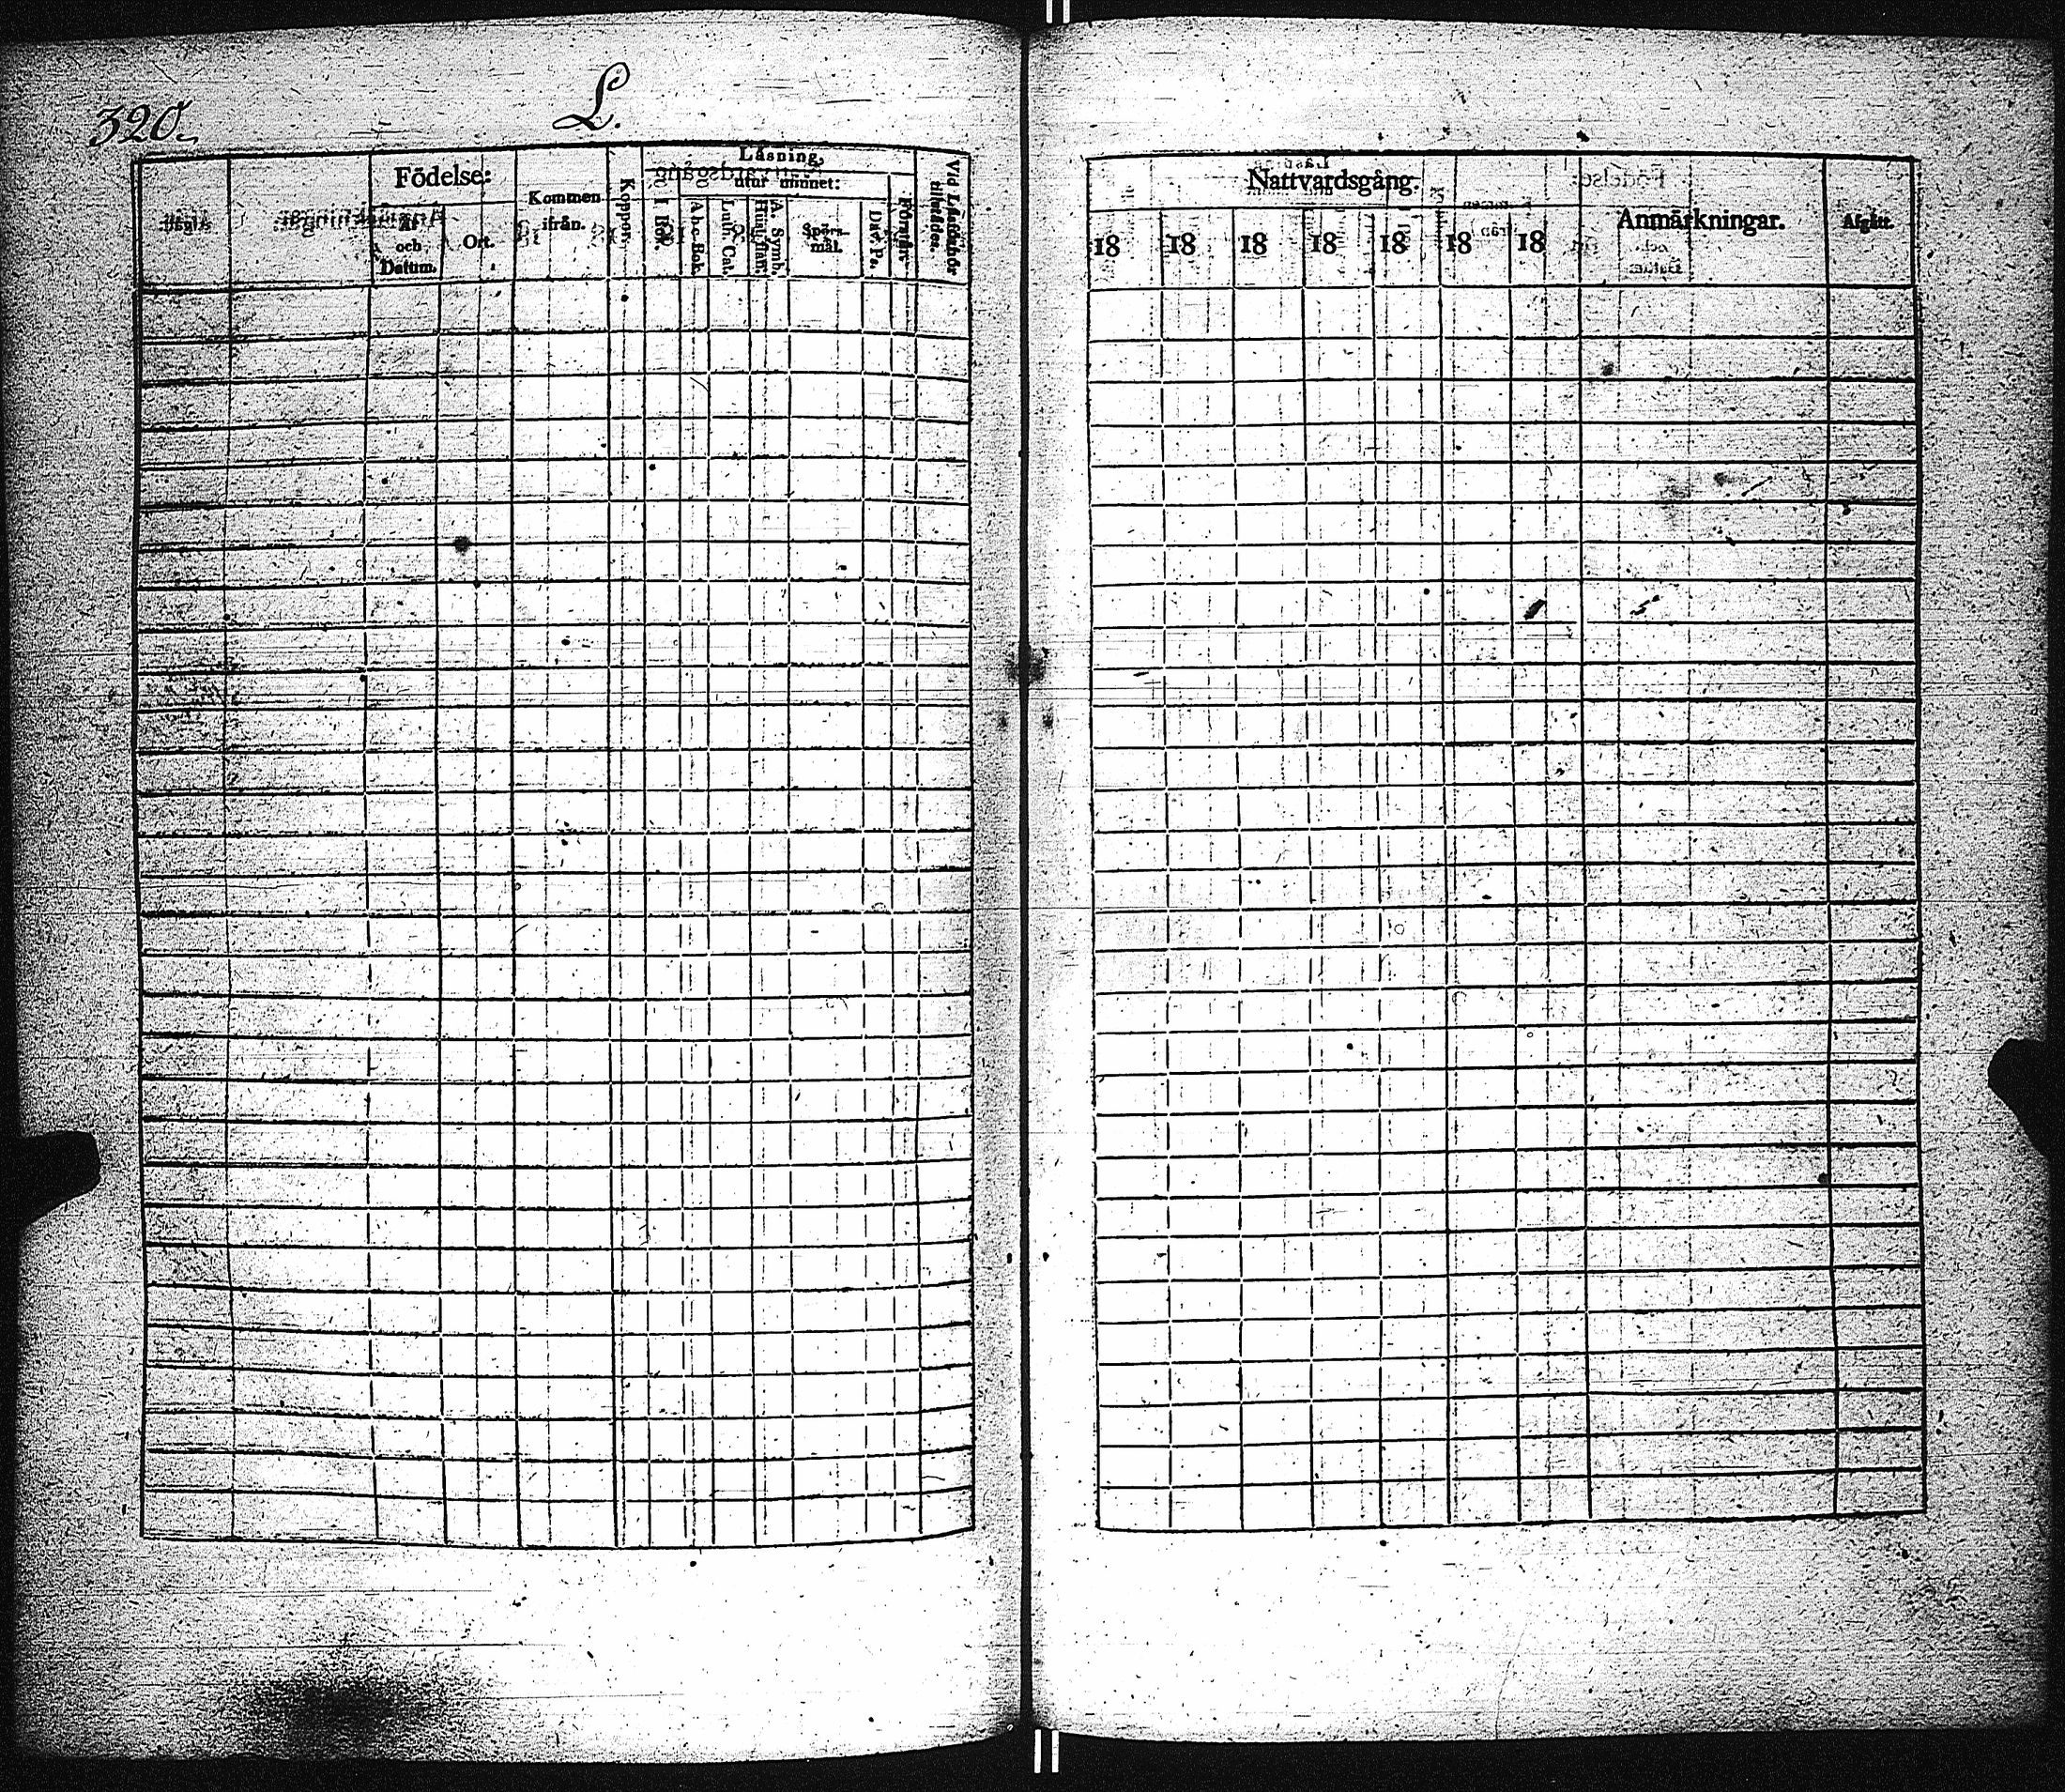 320.
L.
Födelse:
År och Datum.
Ort.
Kommen ifrån.
Koppor.
Läsning,
I Bok.
utur minnet:
A b c-Bok.
Luth. Cat.
A. Symb. Hust.taff.
Spörs-mål.
Dav. Ps.
Förstånd.
Vid Läsförhör tilstädes.
Nattvardsgång.
18 18 18 18 18 18 18
Anmärkningar.
Afgått.